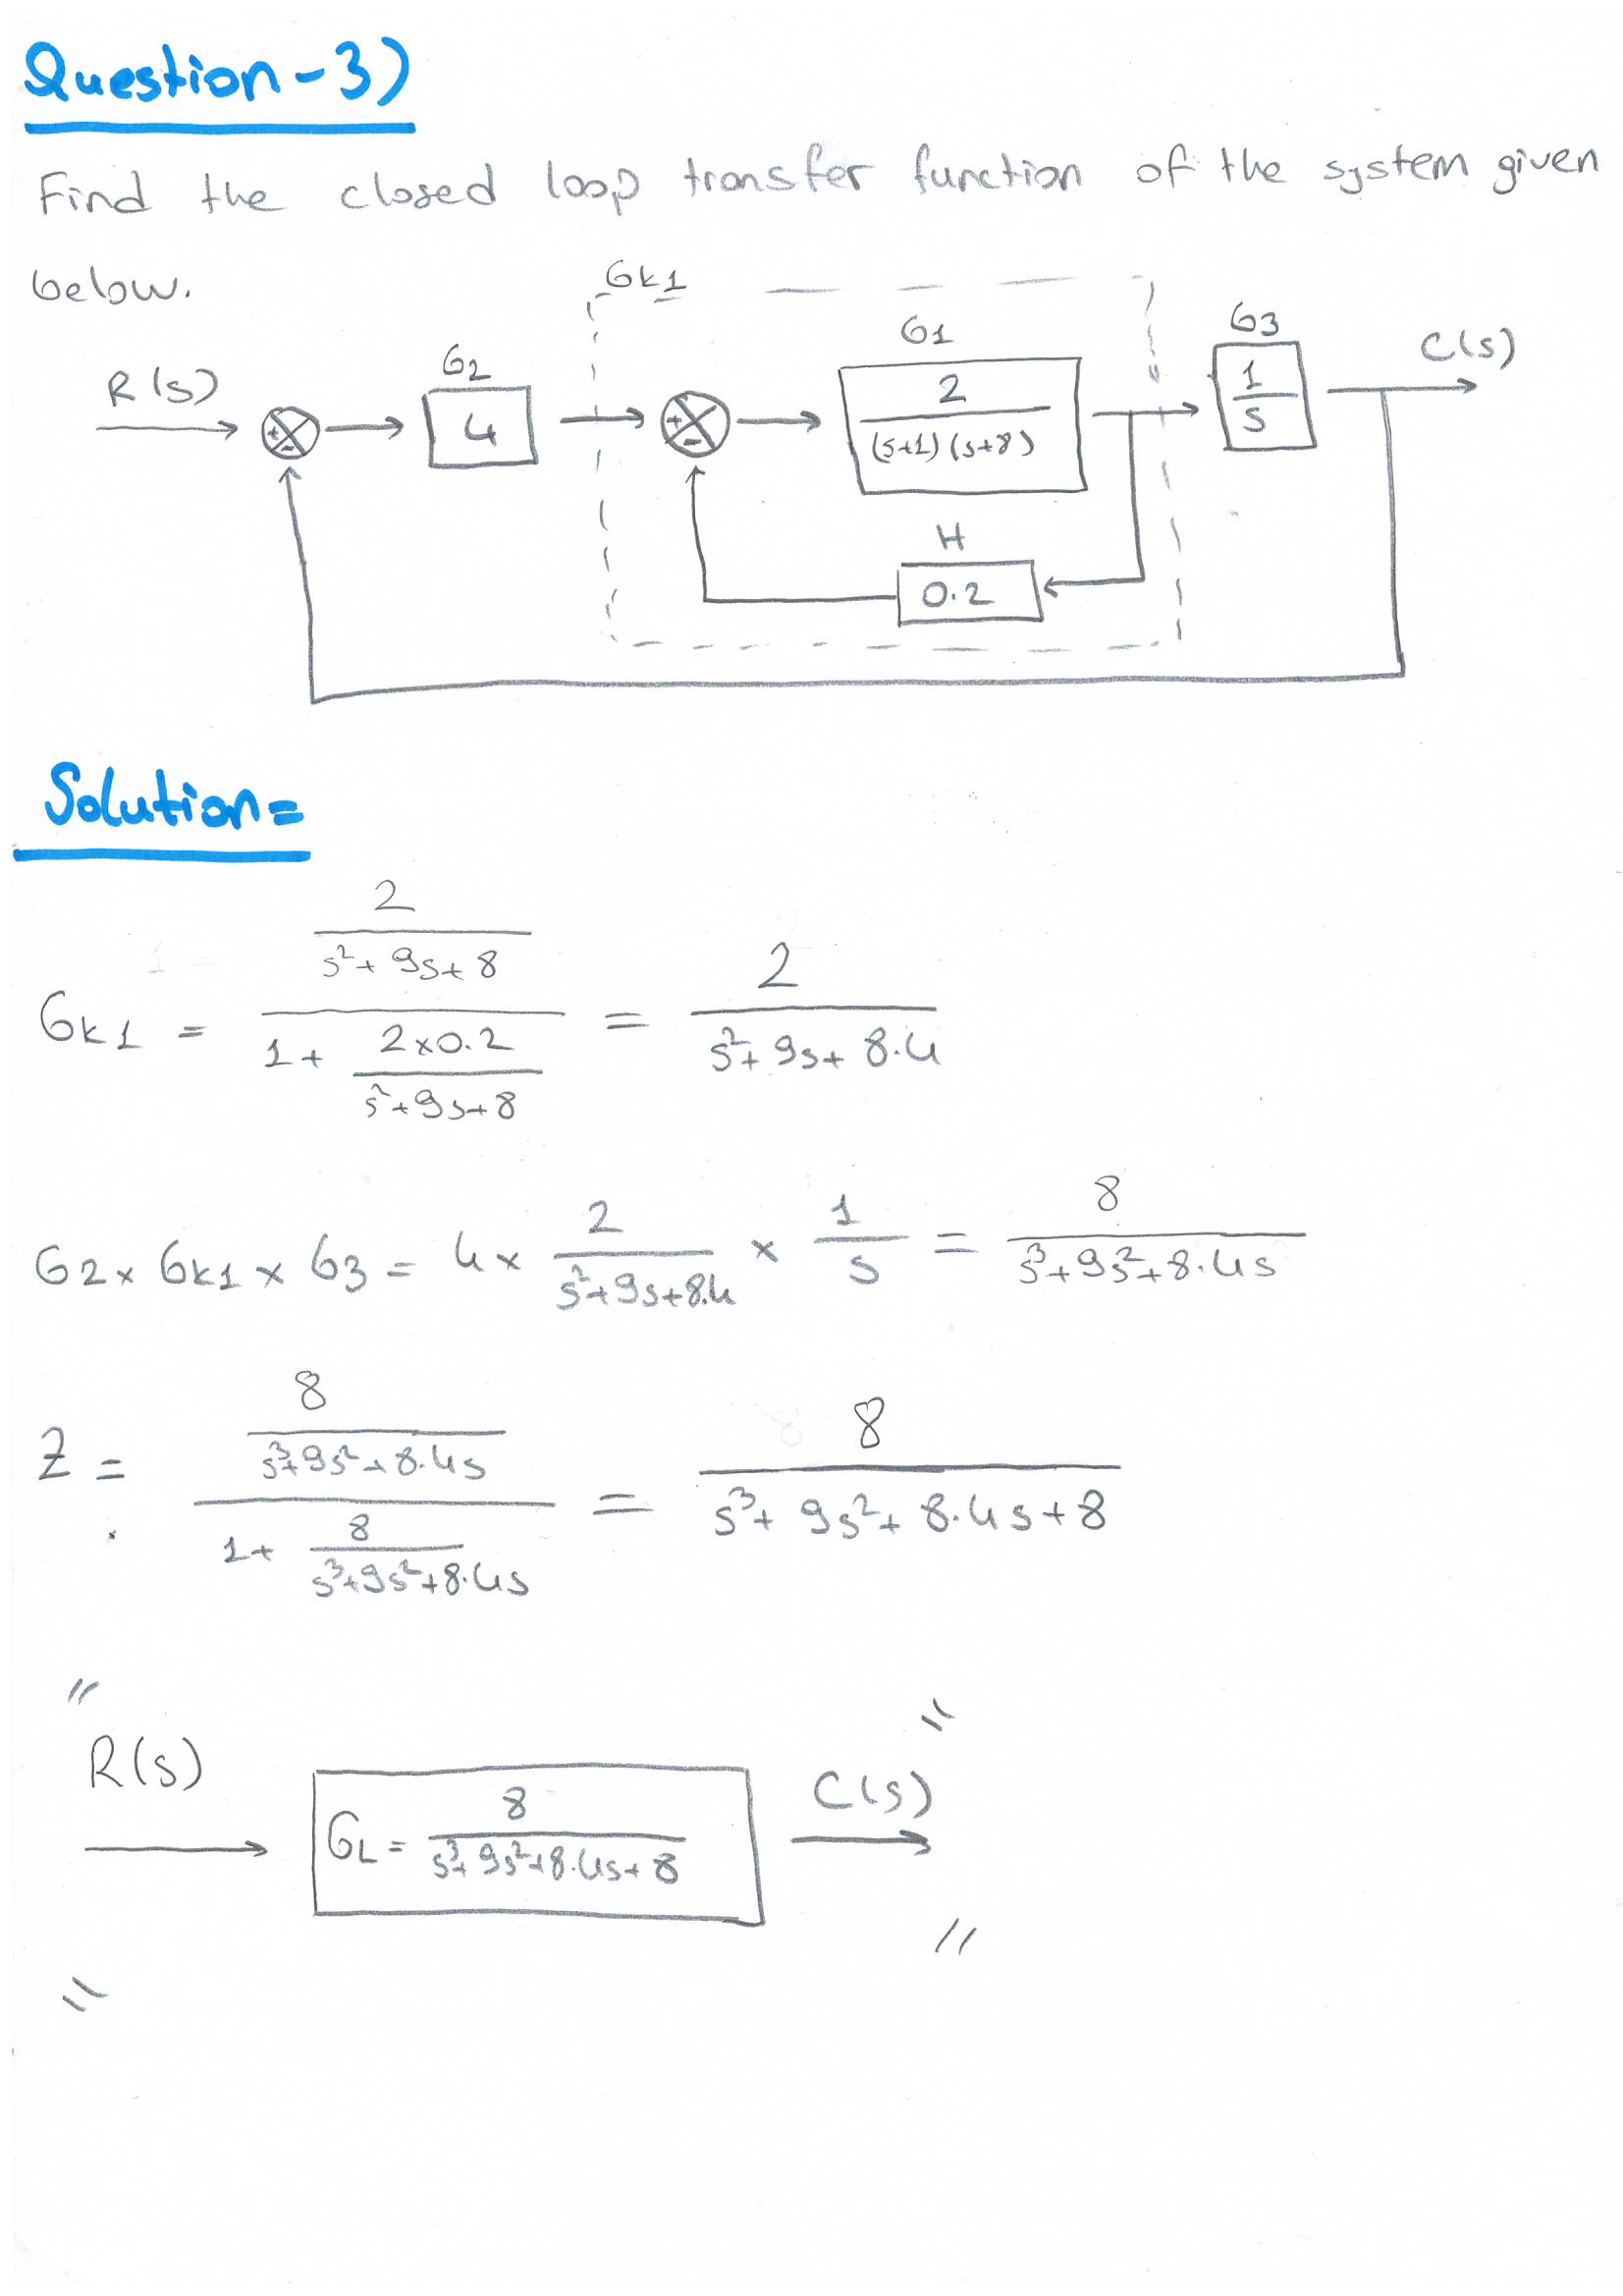 Question-3)
Find the closed loop transfer function of the system given
below.
Gk1
G1
G3
C(s)
R(s)
G2
4
+
-
+
-
2
(s+1)(s+8)
1
s
H
0.2
Solution=
2
s²+9s+8
Gk1 =
1+
2x0.2
s²+9s+8
=
2
s²+9s+8.4
G2xGk1xG3 = 4x
2
s²+9s+8.4
x
1
s
=
8
s³+9s²+8.4s
Z =
8
s³+9s²+8.4s
1+
8
s³+9s²+8.4s
=
8
s³+9s²+8.4s+8
R(s)
GL =
8
s³+9s²+8.4s+8
C(s)